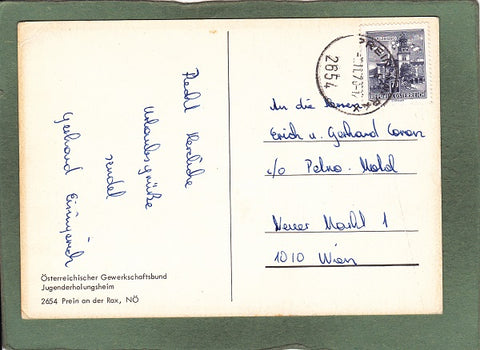 Recht Herzliche
Urlaubsgrüße
sendet
Gerhard
Österreichischer Gewerkschaftsbund
Jugenderholungsheim
2654 Prein an der Rax, NÖ
PREIN
2654
REPUBLIK ÖSTERREICH
An die Herren
Erich u. Gerhard
c/o
Neuer Markt 1
1010 Wien